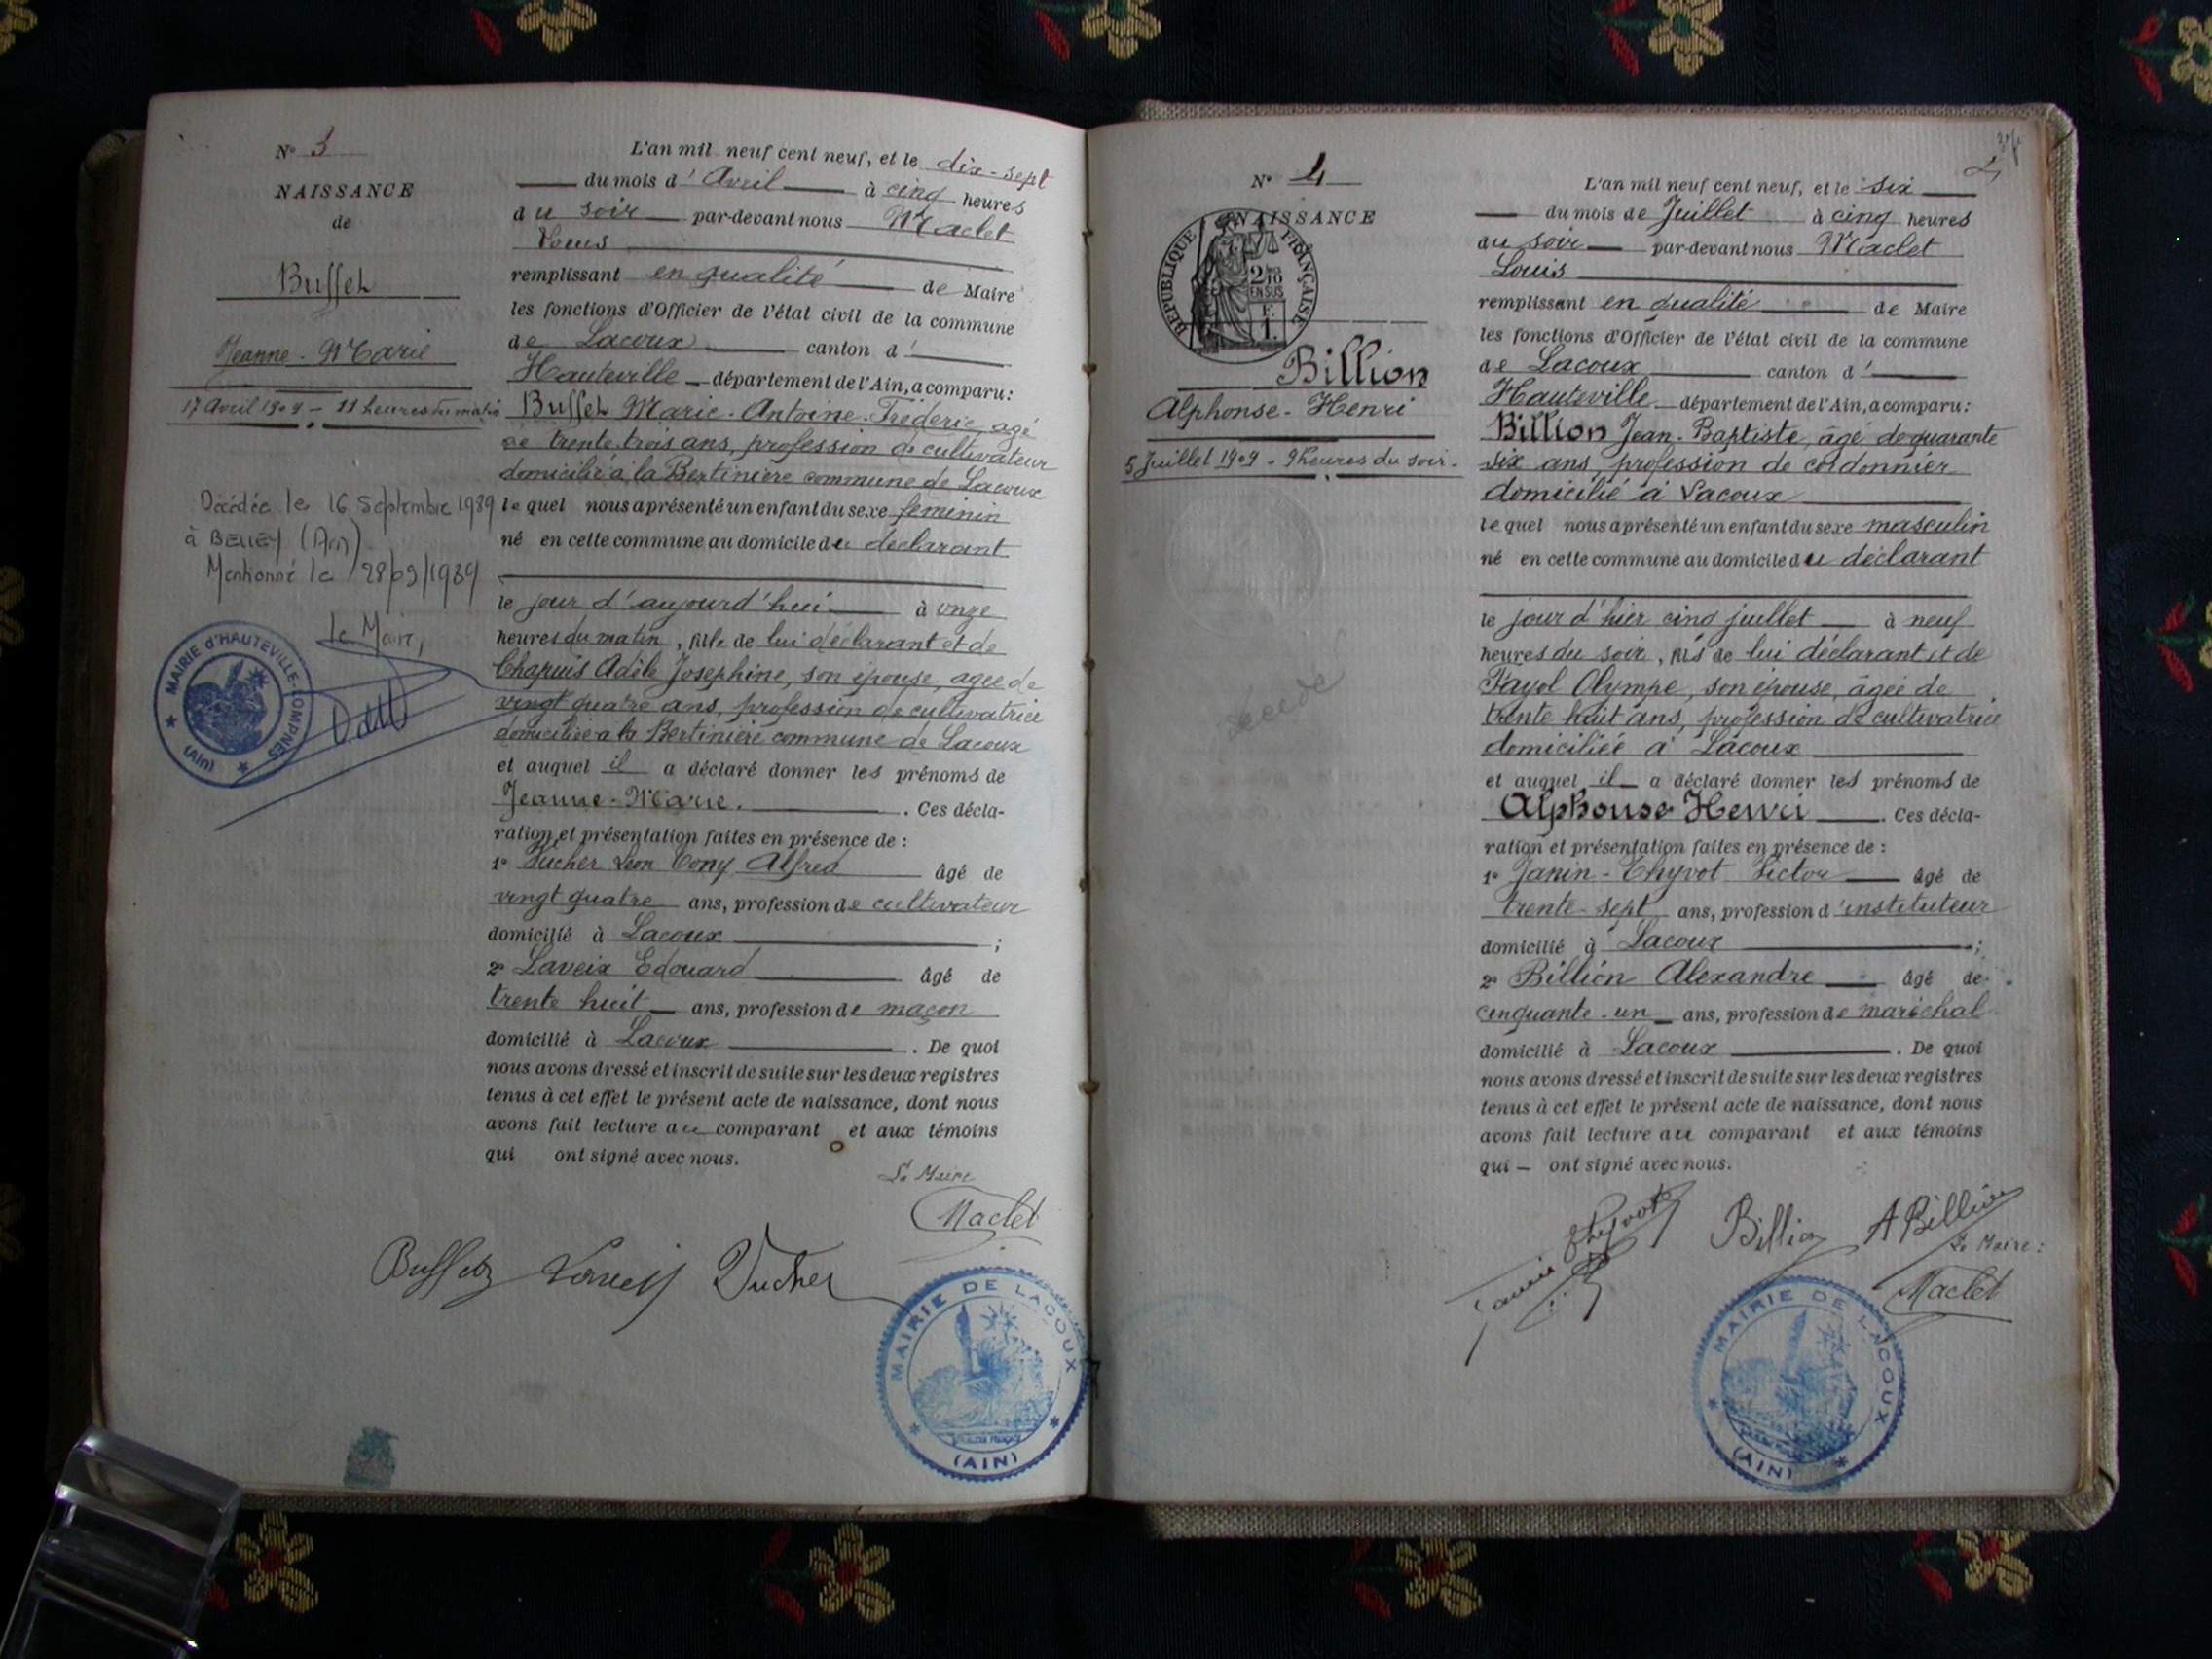 N° 3
NAISSANCE
de
Buffet
Jeanne-Marie
17 Avril 1909 - 11 heures du matin
Décédée le 16 Septembre 1989
à BELLEY (Ain)
Mentionné le 28/09/1989
Le Maire,
MAIRIE d'HAUTEVILLE-LOMPNES
(Ain)
L'an mil neuf cent neuf, et le dix-sept
du mois d'Avril à cinq heures
du soir par-devant nous Maclet
Louis
remplissant en qualité de Maire
les fonctions d'Officier de l'état civil de la commune
de Lacoux canton d'
Hauteville département de l'Ain, a comparu:
Buffet Marie-Antoine-Fréderic, agé
de trente trois ans, profession de cultivateur
domicilié à la Bertinière commune de Lacoux
lequel nous a présenté un enfant du sexe féminin
né en cette commune au domicile du déclarant
le jour d'aujourd'hui à onze
heures du matin, fille de lui déclarant et de
Chapuis Adèle Josephine, son épouse, agée de
vingt quatre ans, profession de cultivatrice
domiciliée à la Bertinière commune de Lacoux
et auquel il a déclaré donner les prénoms de
Jeanne-Marie. Ces décla-
ration et présentation faites en présence de :
1° Ducher Léon Tony Alfred âgé de
vingt quatre ans, profession de cultivateur
domicilié à Lacoux ;
2° Laveix Edouard âgé de
trente huit ans, profession de maçon
domicilié à Lacoux. De quoi
nous avons dressé et inscrit de suite sur les deux registres
tenus à cet effet le présent acte de naissance, dont nous
avons fait lecture au comparant et aux témoins
qui ont signé avec nous.
Le Maire
Maclet
Buffet Ducher
MAIRIE DE LACOUX
(AIN)
N° 4
NAISSANCE
REPUBLIQUE FRANÇAISE
2/10
EN SUS
F.
1
Billion
Alphonse-Henri
5 Juillet 1909 - 9 heures du soir-
décédé
L'an mil neuf cent neuf, et le six
du mois de Juillet à cinq heures
du soir par-devant nous Maclet
Louis
remplissant en qualité de Maire
les fonctions d'Officier de l'état civil de la commune
de Lacoux canton d'
Hauteville département de l'Ain, a comparu:
Billion Jean-Baptiste, âgé de quarante
six ans, profession de cordonnier
domicilié à Lacoux
lequel nous a présenté un enfant du sexe masculin
né en cette commune au domicile du déclarant
le jour d'hier cinq juillet à neuf
heures du soir, fils de lui déclarant et de
Fayol Olympe, son épouse, âgée de
trente huit ans, profession de cultivatrice
domiciliée à Lacoux
et auquel il a déclaré donner les prénoms de
Alphonse Henri. Ces décla-
ration et présentation faites en présence de :
1° Janin-Thyvot Victor âgé de
trente-sept ans, profession d'instituteur
domicilié à Lacoux ;
2° Billion Alexandre âgé de
cinquante-un ans, profession de maréchal
domicilié à Lacoux. De quoi
nous avons dressé et inscrit de suite sur les deux registres
tenus à cet effet le présent acte de naissance, dont nous
avons fait lecture au comparant et aux témoins
qui ont signé avec nous.
Janin Thyvot Billion A Billion
Le Maire:
Maclet
MAIRIE DE LACOUX
(AIN)